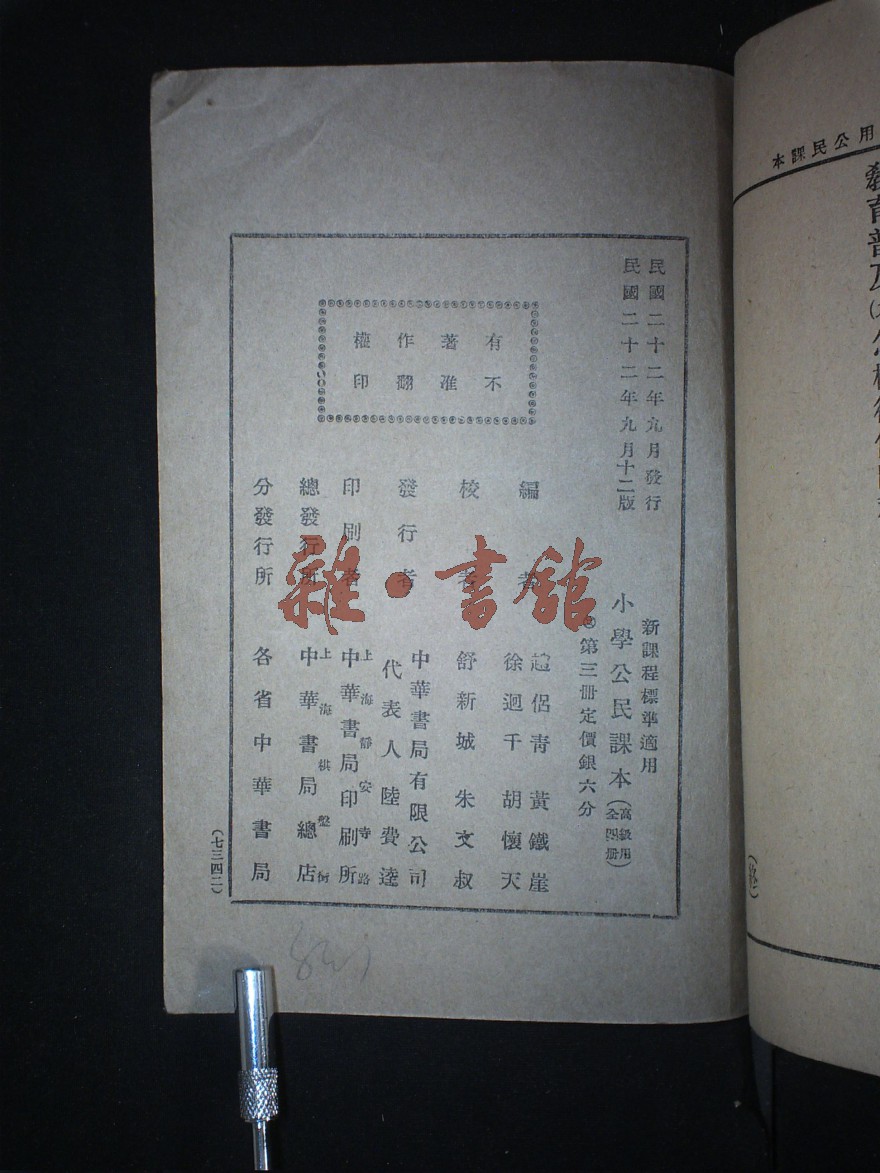 民國二十二年九月發行
民國二十二年九月十二版
有著作權
不准翻印
新課程標準適用
小學公民課本(高級用全四冊)
第三冊定價銀六分
編者
趙侶青 黃鐵崖
徐迥千 胡懷天
校者
舒新城 朱文叔
發行者
中華書局有限公司
代表人陸費逵
印刷者
上海靜安寺路
中華書局印刷所
總發行所
上海棋盤街
中華書局總店
分發行所
各省中華書局
(七三四二)
雜·書館
用公民課本
教育普及